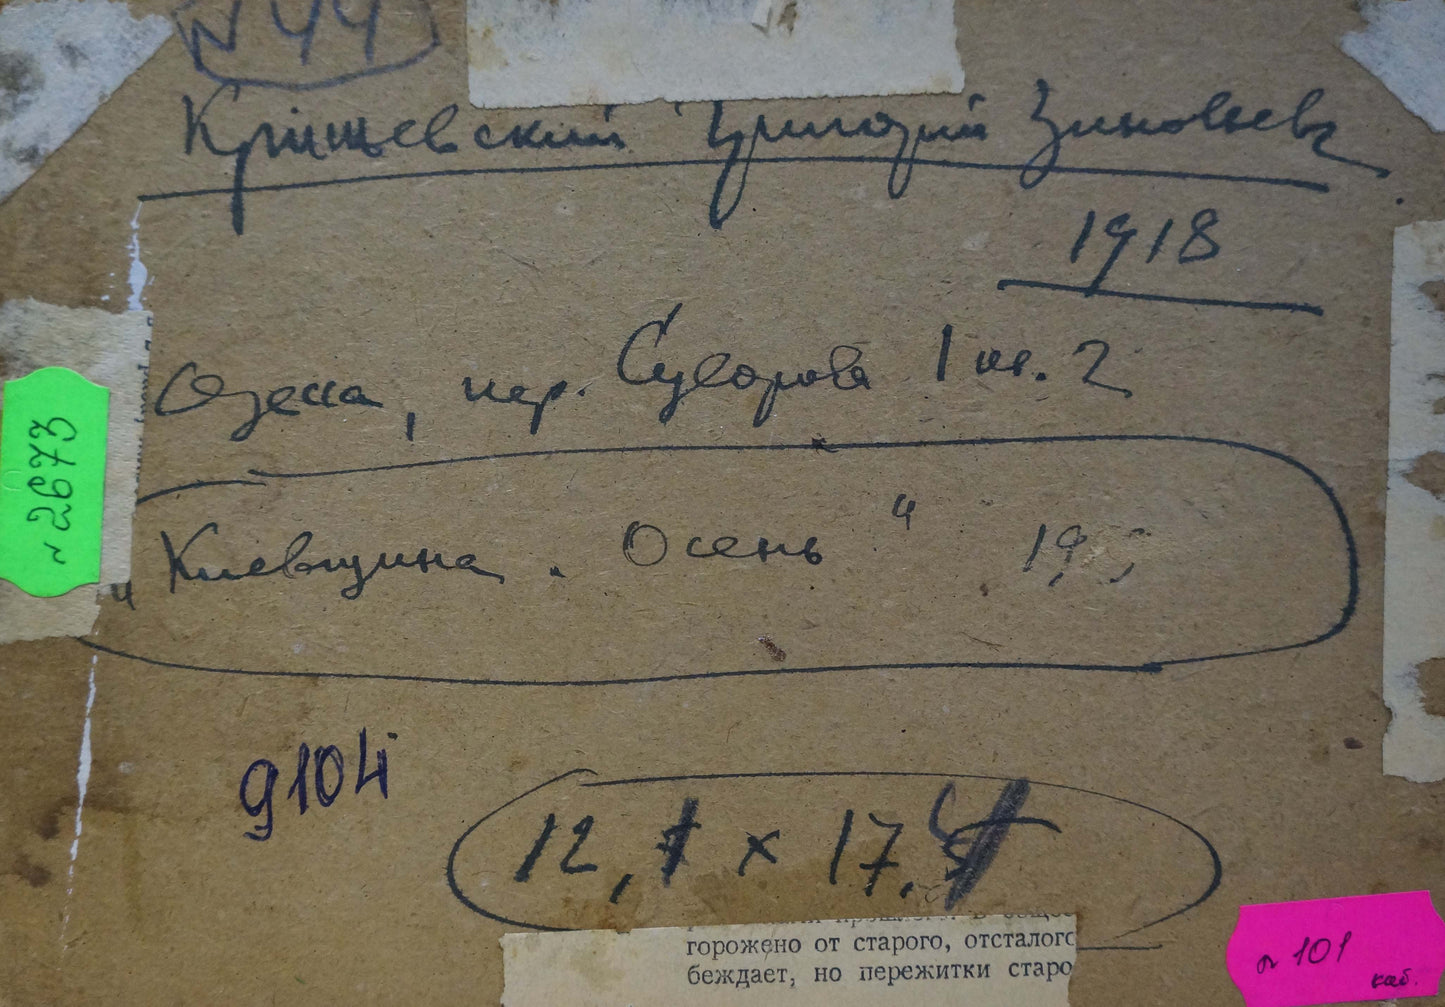 N 44
Крищевский Григорий Зиновьев
1918
Одесса, пер. Суворова 1 кв. 2
№ 2673
"Киевщина. Осень"
9104
12, × 17,
горожено от старого, отсталого
беждает, но пережитки старо
№ 101
каб.